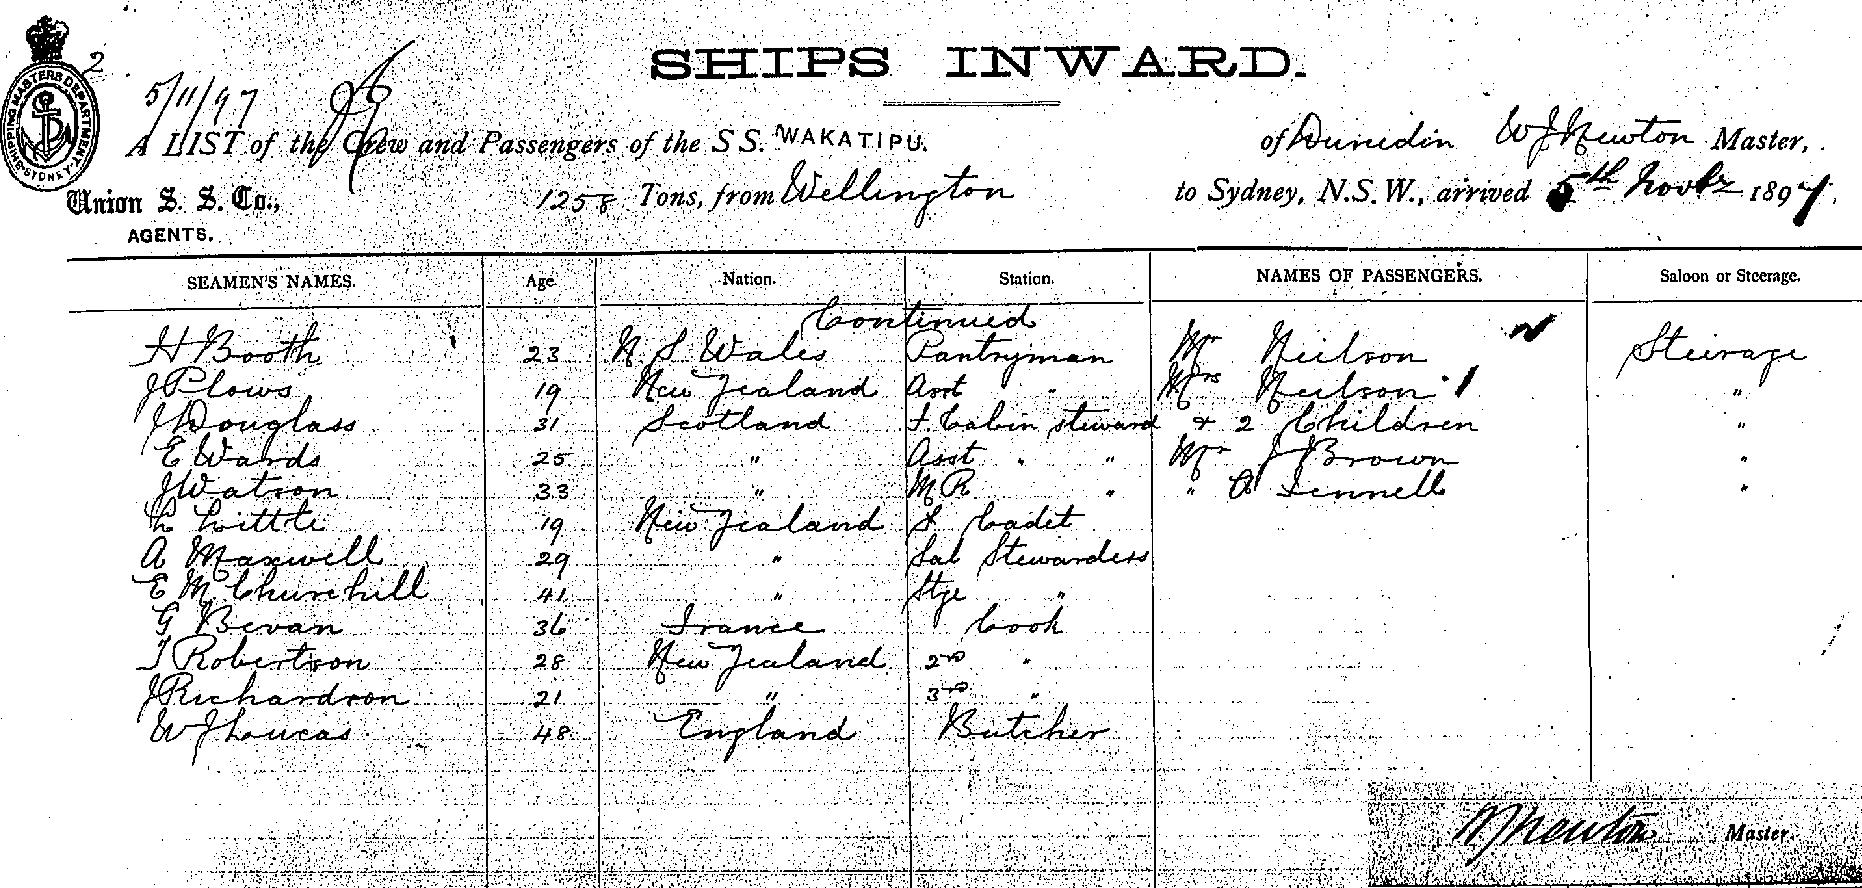 SHIPS INWARD.
SHIPPING MASTERS DEPARTMENT SYDNEY
2
5/11/97
A LIST of the Crew and Passengers of the S S. "WAKATIPU. of Dunedin W J Newton Master,
Union S. S. Co., AGENTS. 1258 Tons, from Wellington to Sydney, N.S.W., arrived 5th Novbr 1897.
SEAMEN'S NAMES. Age Nation. Station. NAMES OF PASSENGERS. Saloon or Steerage.
Continued
H Booth 23 N S Wales Pantryman Mr Neilson Steerage
J Plows 19 New Zealand Asst " Mrs Neilson 1 "
J Douglass 31 Scotland F Cabin Steward + 2 Children "
E Wards 25 " Asst " " Mr J Brown "
J Watson 33 " M R " " A Fennell "
L Little 19 New Zealand S Cadet
A Maxwell 29 " Sal Stewardess
E M Churchill 41 " Stge "
G Bevan 36 France Cook
T Robertson 28 New Zealand 2nd "
J Richardson 21 " 3rd "
W J Loucas 48 England Butcher
W J Newton Master.